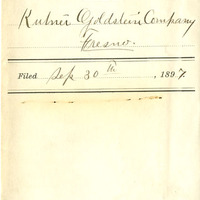 Kutner Goldstein Company
Fresno.
Filed Sep 30th, 1897